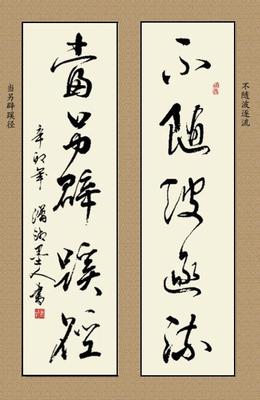 不随波逐流
不随波逐流
當另辟蹊徑
辛卯年
墨人書
当另辟蹊径